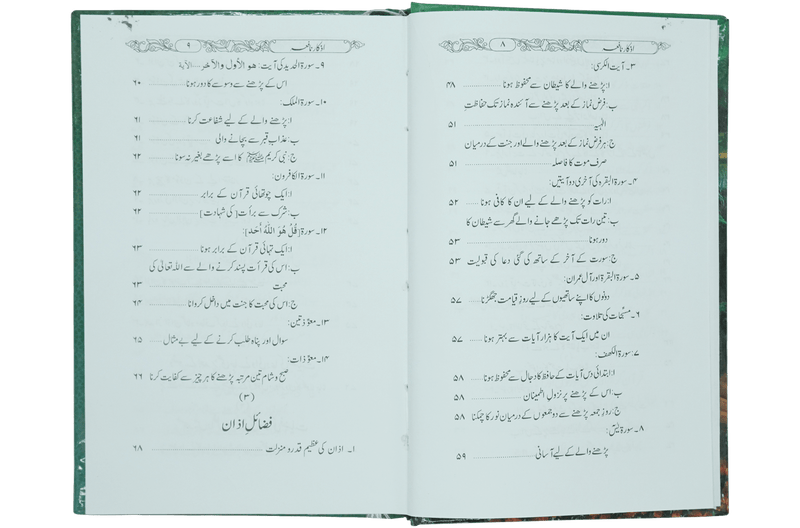 اذکارِ نافعہ
۸
۳۔ آیت الکرسی:
ا: پڑھنے والے کا شیطان سے محفوظ ہونا ........ ۴۸
ب: فرض نماز کے بعد پڑھنے سے آئندہ نماز تک حفاظتِ
الٰہیہ ........ ۵۱
ج: ہر فرض نماز کے بعد پڑھنے والے اور جنت کے درمیان
صرف موت کا فاصلہ ........ ۵۱
۴۔ سورۃ البقرہ کی آخری دو آیتیں:
ا: رات کو پڑھنے والے کے لیے ان کا کافی ہونا ........ ۵۲
ب: تین رات تک پڑھے جانے والے گھر سے شیطان کا
دور ہونا ........ ۵۳
ج: سورت کے آخر کے ساتھ کی گئی دعا کی قبولیت ۵۳
۵۔ سورۃ البقرۃ اور آل عمران:
دونوں کا اپنے ساتھیوں کے لیے روزِ قیامت جھگڑنا ........ ۵۷
۶۔ مسبّحات کی تلاوت:
ان میں ایک آیت کا ہزار آیات سے بہتر ہونا ........ ۵۷
۷: سورۃ الکہف:
ا: ابتدائی دس آیات کے حافظ کا دجال سے محفوظ ہونا ........ ۵۸
ب: اس کے پڑھنے پر نزولِ اطمینان ........ ۵۸
ج: روزِ جمعہ پڑھنے سے دو جمعوں کے درمیان نور کا چمکنا ۵۸
۸۔ سورۃ یٰسٓ:
پڑھنے والے کے لیے آسانی ........ ۵۹
اذکارِ نافعہ
۹
۹۔ سورۃ الحدید کی آیت: هو الأول والآخر ........ الآية
اس کے پڑھنے سے وسوسے کا دور ہونا ........ ۶۰
۱۰۔ سورۃ الملک:
ا: پڑھنے والے کے لیے شفاعت کرنا ........ ۶۱
ب: عذابِ قبر سے بچانے والی ........ ۶۱
ج: نبی کریم ﷺ کا اسے پڑھے بغیر نہ سونا ........ ۶۲
۱۱۔ سورۃ الکافرون:
ا: ایک چوتھائی قرآن کے برابر ........ ۶۲
ب: شرک سے برأت [کی شہادت] ........ ۶۲
۱۲۔ سورۃ [قُلْ هُوَ اللّٰهُ أَحَد]:
ا: ایک تہائی قرآن کے برابر ہونا ........ ۶۳
ب: اس کی قرأت پسند کرنے والے سے اللہ تعالیٰ کی
محبت ........ ۶۳
ج: اس کی محبت کا جنت میں داخل کروانا ........ ۶۴
۱۳۔ معوّذتین:
سوال اور پناہ طلب کرنے کے لیے بے مثال ........ ۶۵
۱۴۔ معوّذات:
صبح و شام تین مرتبہ پڑھنے کا ہر چیز سے کفایت کرنا ۶۶
(۳)
فضائلِ اذان
۱۔ اذان کی عظیم قدر و منزلت ........ ۶۸